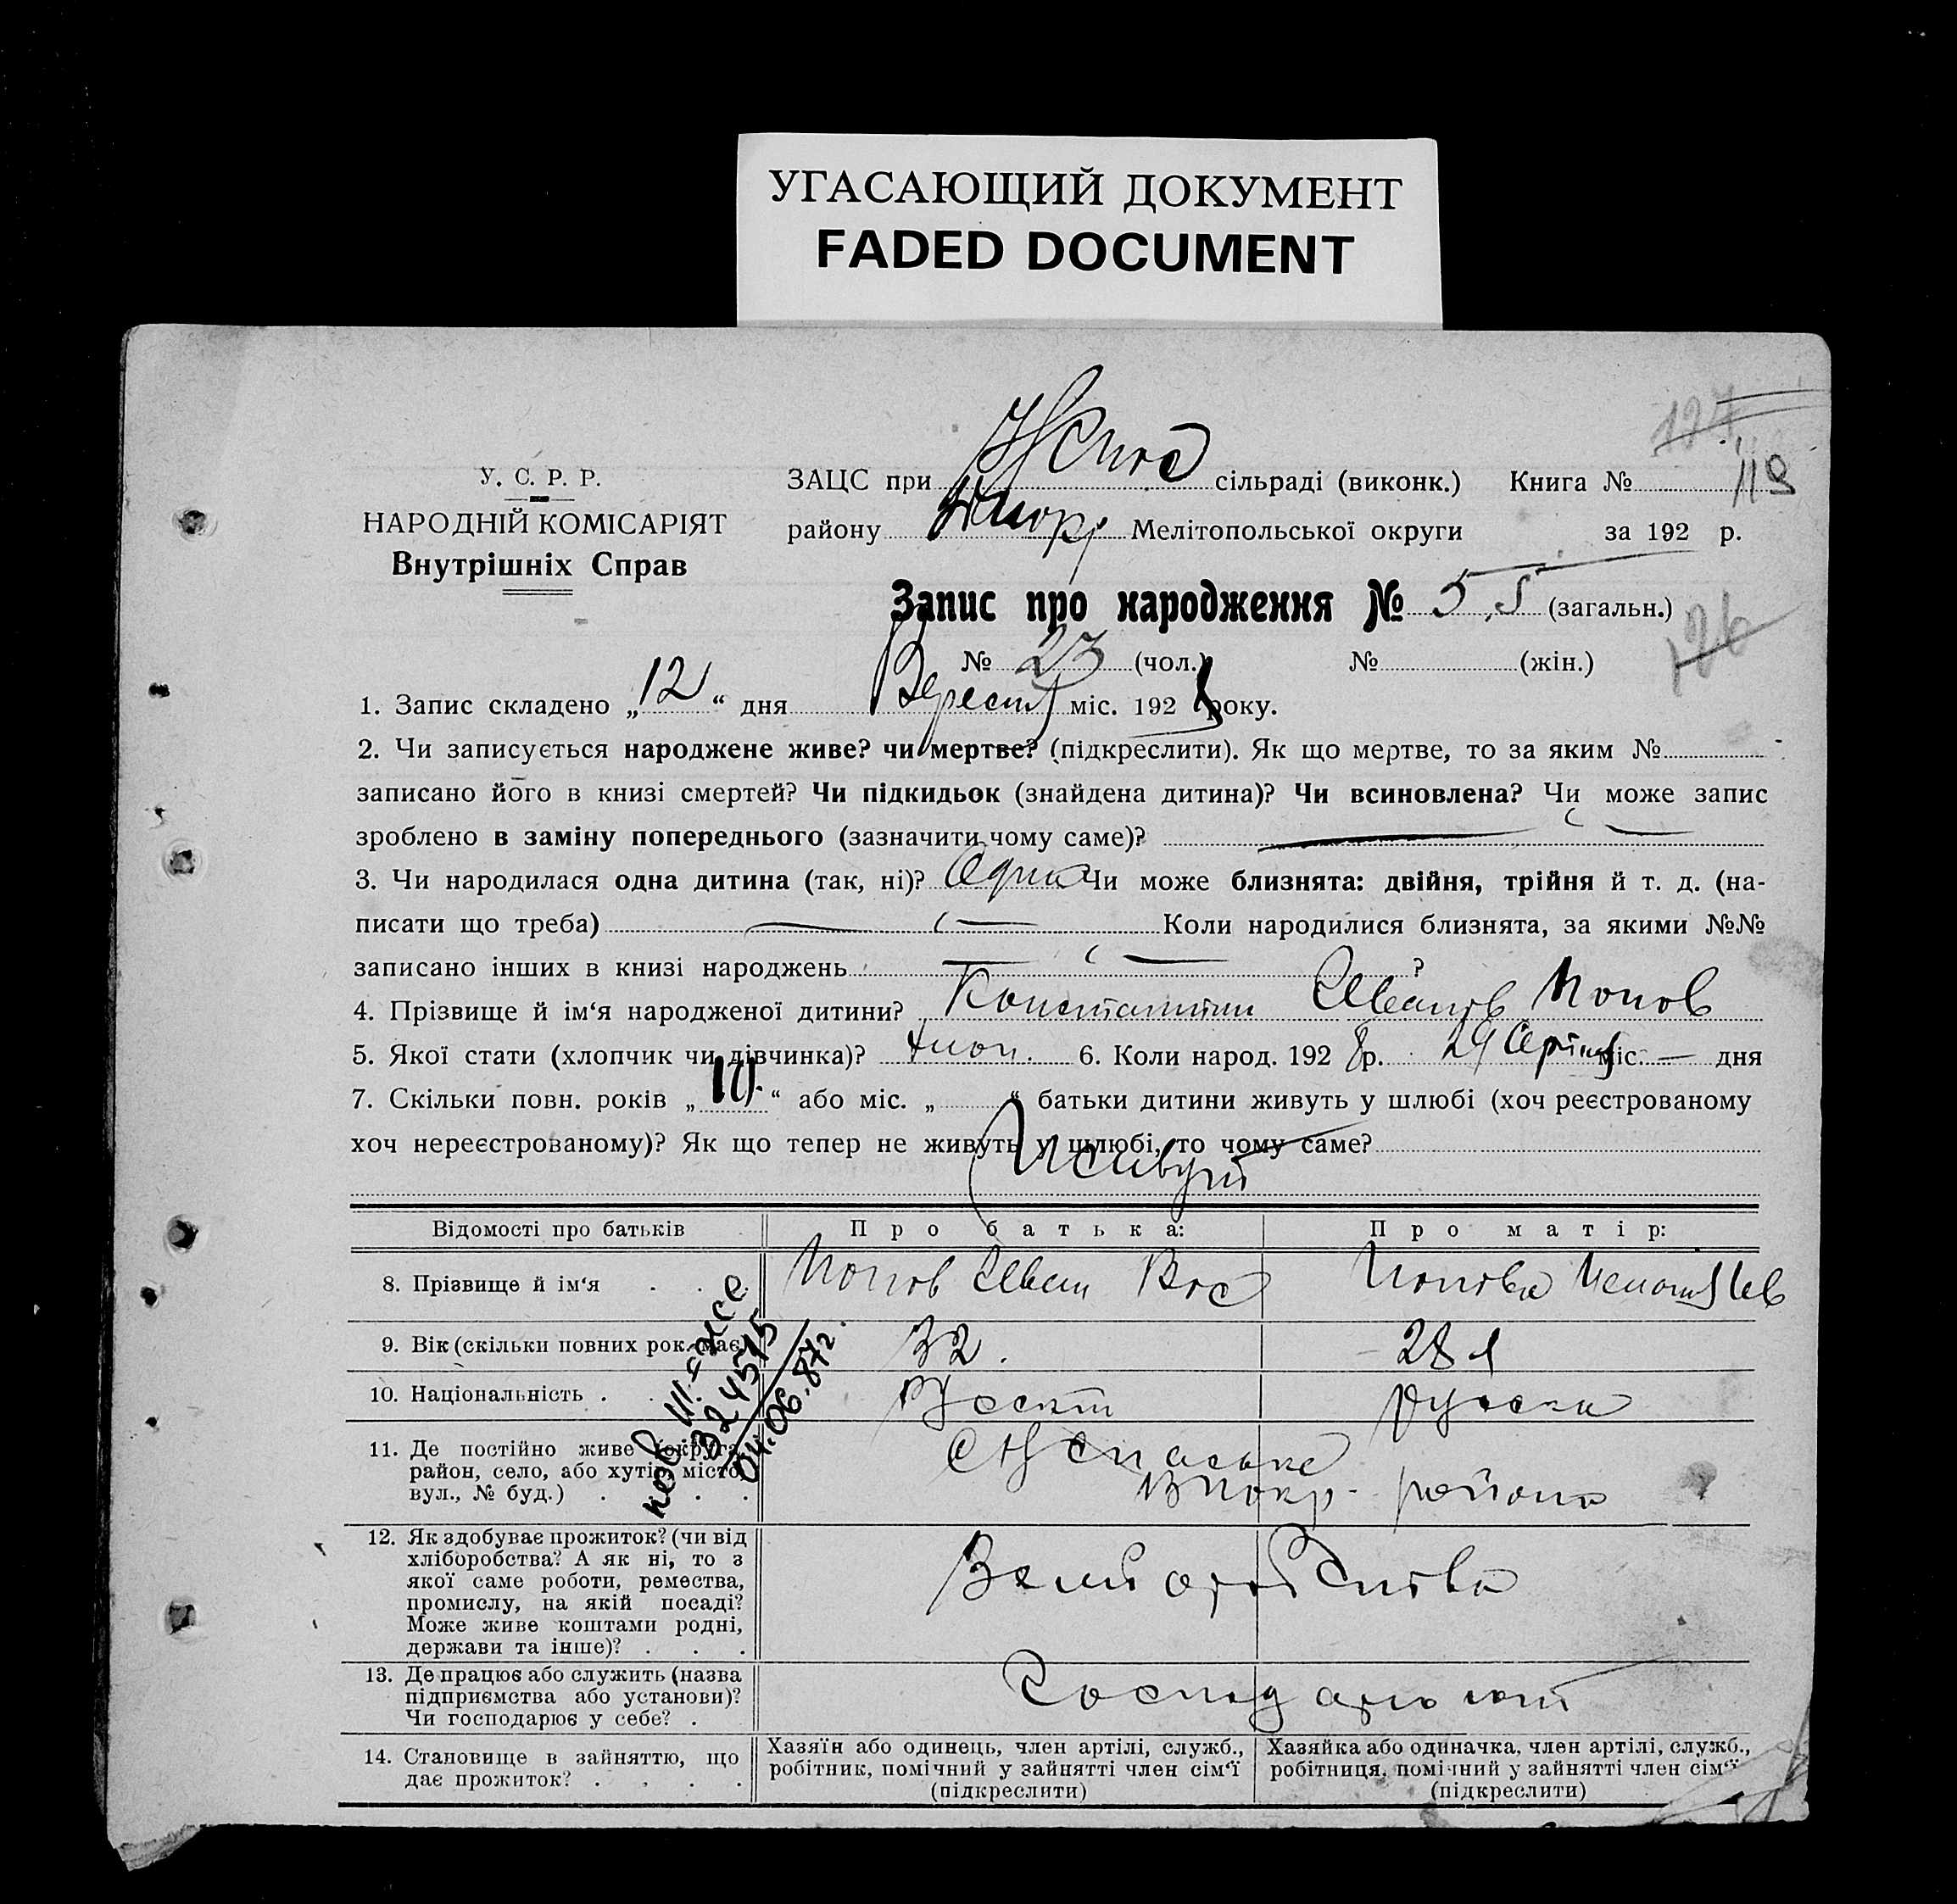 УГАСАЮЩИЙ ДОКУМЕНТ
FADED DOCUMENT
127
У. С. Р. Р.
НАРОДНІЙ КОМІСАРІЯТ
Внутрішніх Справ
ЗАЦС при сільраді (виконк.) Книга № 118
району Мелітопольської округи за 192 р.
Запис про народження № 55 (загальн.)
126
№ 23 (чол.) № (жін.)
1. Запис складено „12“ дня Вересня міс. 1928 року.
2. Чи записується народжене живе? чи мертве? (підкреслити). Як що мертве, то за яким №
записано його в книзі смертей? Чи підкидьок (знайдена дитина)? Чи всиновлена? Чи може запис
зроблено в заміну попереднього (зазначити чому саме)?
3. Чи народилася одна дитина (так, ні)? Одна Чи може близнята: двійня, трійня й т. д. (на-
писати що треба) Коли народилися близнята, за якими №№
записано інших в книзі народжень ?
4. Прізвище й ім‘я народженої дитини? Константин Иванов Попов
5. Якої стати (хлопчик чи дівчинка)? хлоп. 6. Коли народ. 1928 р. 29 Серпня міс. — дня
7. Скільки повн. років „10“ або міс. „ “ батьки дитини живуть у шлюбі (хоч реєстрованому
хоч нереєстрованому)? Як що тепер не живуть у шлюбі, то чому саме?
Живут
Відомості про батьків Про батька: Про матір:
8. Прізвище й ім‘я Попов Иван Вас Попова
9. Вік (скільки повних рок. має) 32. 28 л
10. Національність руска
11. Де постійно живе (округа,
район, село, або хутір, місто,
вул., № буд.) района
324575
04.06.87г.
12. Як здобуває прожиток? (чи від
хліборобства? А як ні, то з
якої саме роботи, ремества,
промислу, на якій посаді?
Може живе коштами родні,
держави та інше)?
13. Де працює або служить (назва
підприємства або установи)?
Чи господарює у себе? Господарюют
14. Становище в зайняттю, що
дає прожиток?
Хазяїн або одинець, член артілі, служб.,
робітник, помічний у зайнятті член сім‘ї
(підкреслити)
Хазяйка або одиначка, член артілі, служб.,
робітниця, помічний у зайнятті член сім‘ї
(підкреслити)